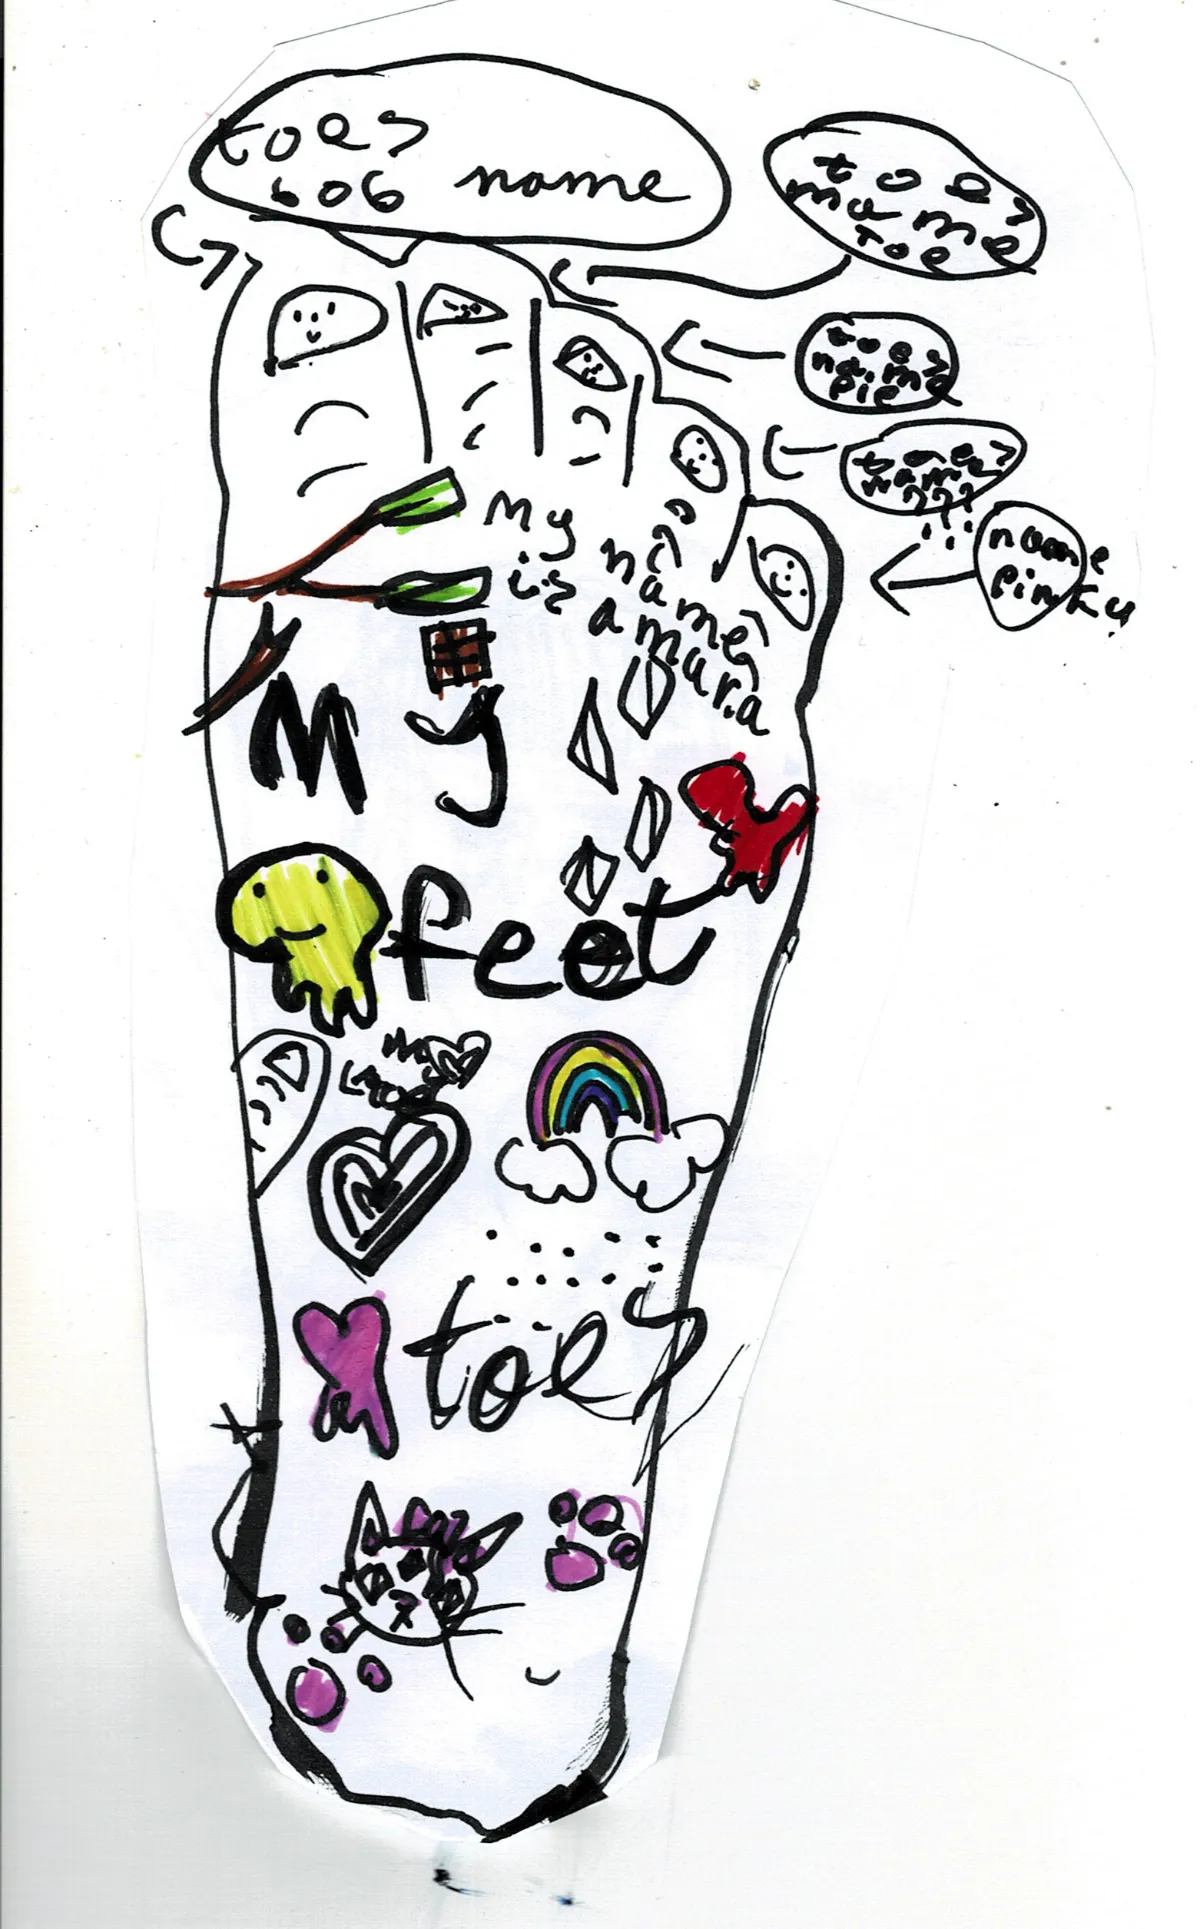 toes
bob name
toes
name
toe
toes
name
pie
toes
name
???
name
pinky
My name
is amara
My
feet
toes